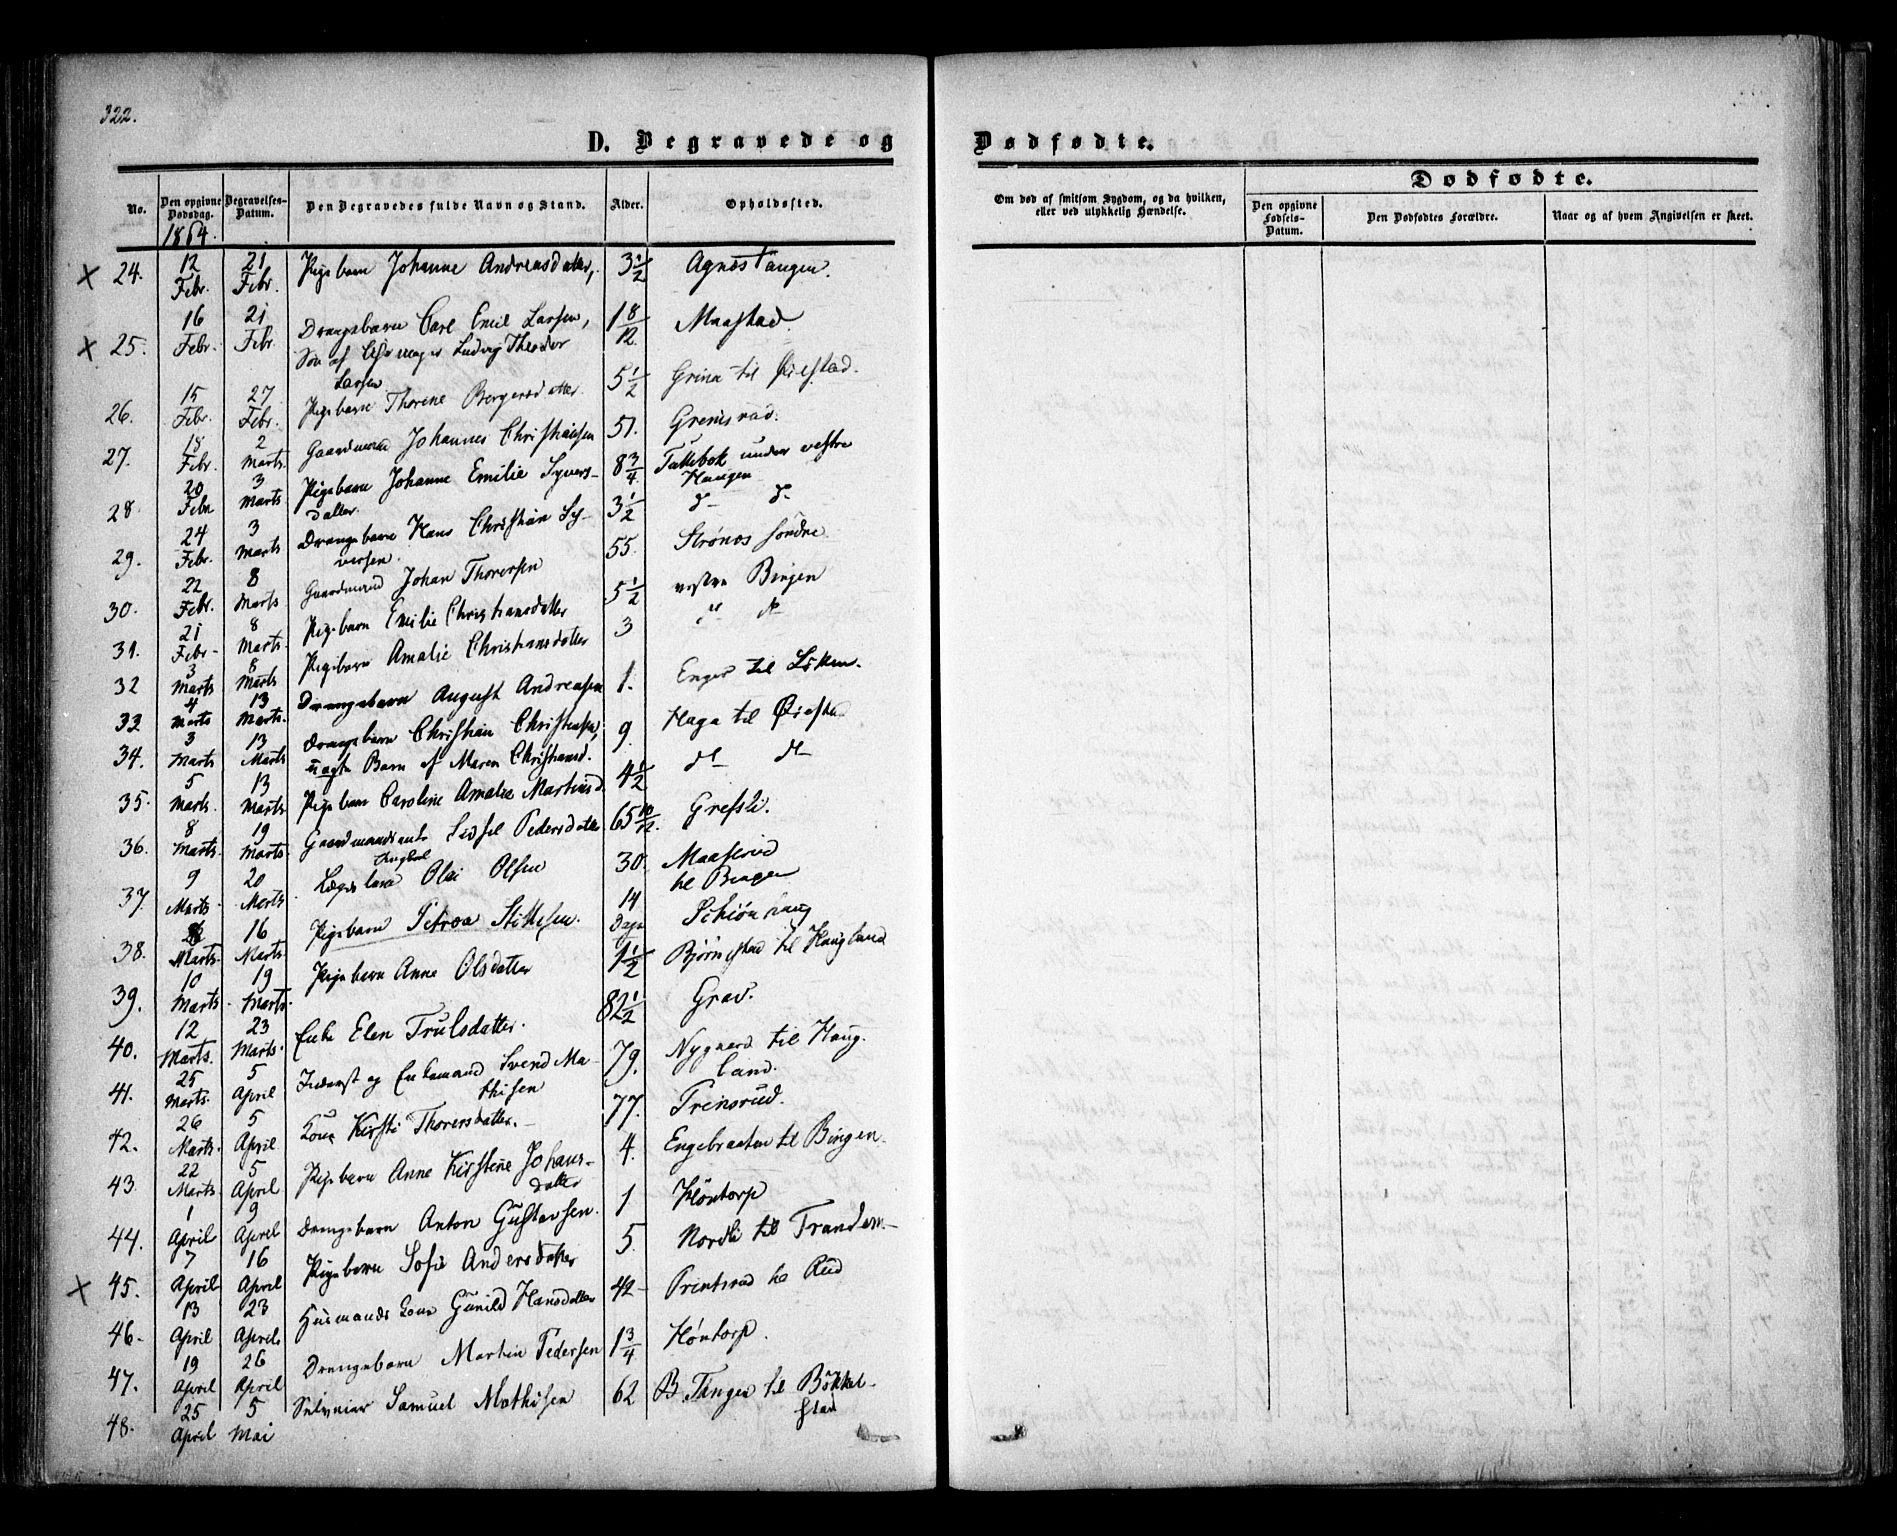 322.
D. Begravede og Dødfødte.
No. Den opgivne Dødsdag. Begravelses-Datum. Den Begravedes fulde Navn og Stand. Alder. Opholdssted. Om død af smitsom Sygdom, og da hvilken, eller ved ulykkelig Hændelse. Dødfødte.
Den opgivne Fødsels-Datum. Den Dødfødtes Forældre. Naar og af hvem Angivelsen er skeet.
1864.
x 24. 12 Febr. 21 Febr. Pigebarn Johanne Andreasdatter, 3 1/2 Agnæstangen.
x 25. 16 Febr. 21 Febr Drengebarn Carl Emil Larsen, 1 8/12 Maastad.
Søn af Ludvig Theodor
Larsen
26. 15 Febr. 27 Febr. Pigebarn Thorine Borgersdatter 5 1/2 Grina til Øiestad.
27. 18 Febr. 2 Marts Gaardmand Johannes Christiansen 51. Grenisrud.
28. 20 Febr 3 Marts Pigebarn Johanne Emilie Syvers- 8 3/4 under vestre
datter. Haugen
29. 24 Febr. 3 Marts Drengebarn Hans Christian Sy- 3 1/2 d- d-
versen.
30. 22 Febr. 8 Marts Gaardmand Johan Thorersen 55. Strønæs søndre
31. 21 Febr- 8 Marts. Pigebarn Emilie Christiansdatter 5 1/2 vestre Bingen
32 3 Marts 8 Marts Pigebarn Amalie Christiansdatter 3 d- d-
33 4 Marts 13 Marts. Drengebarn August Andreasen 1. Enger til Løken.
34. 3 Marts 13 Marts Drengebarn Christian Christiansen, 9 Haga til Øiestad
uægte Barn af Maren Christiansd.
35. 5 Marts. 13 Marts Pigebarn Caroline Amalie Martinsd. 4 1/2 d- d-
36. 8 Marts. 19 Marts. Gaardmandsenke Sidsel Pedersdatter 65 10/12. Grefsli.
37. 9 Marts 20 Marts. Ungkarl Olai Olsen 30. Maaserud
til Bingen
38. Marts. 16 Marts. Pigebarn Petrea 14 Dage
39. 10 Marts 19 Marts. Pigebarn Anne Olsdatter 1 1/2 Bjørnestad til Haugland
40. 12 Marts. 23 Marts. Enke Elen Trulsdatter. 82 1/2 Grav.
41. 25 Marts. 5 April Inderst og Enkemand Svend Ma- 79. Nygaard til Haug-
thisen land.
42. 26 Marts. 5 April Kone Kirsti Thorersdatter. 77. Trensrud.
43. 22 Marts 5 April Pigebarn Anne Kirstine Johans- 4. Engebraaten til Bingen.
datter
44. 1 April 9 April Drengebarn Anton Gustavsen. 1 Høntorp
x 45. 7 April 16 April Pigebarn Sofie Andersdatter 5. Nordli til Trandem-
46. 13 April 23 April Husmands Kone Gunild Hansdatter 42- Printsrud til Rud
47. 19 April 26 April Drengebarn Martin Pedersen 1 3/4 Høntorp.
48. 25 April 5 Mai Selveier Samuel Mathisen 62 B. Tangen til Bøkkel-
stad